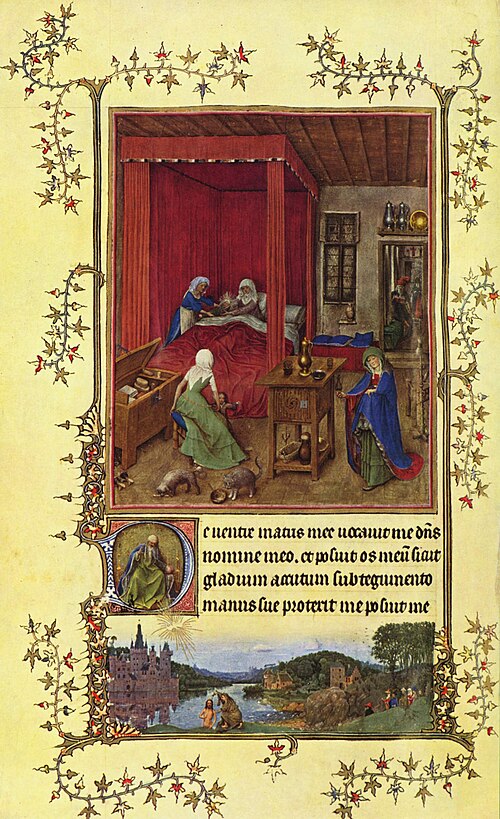 De ventre matris mee vocavit me dn̄s
nomine meo. et posuit os meū sicut
gladium accutum sub tegumento
manus sue protexit me posuit me